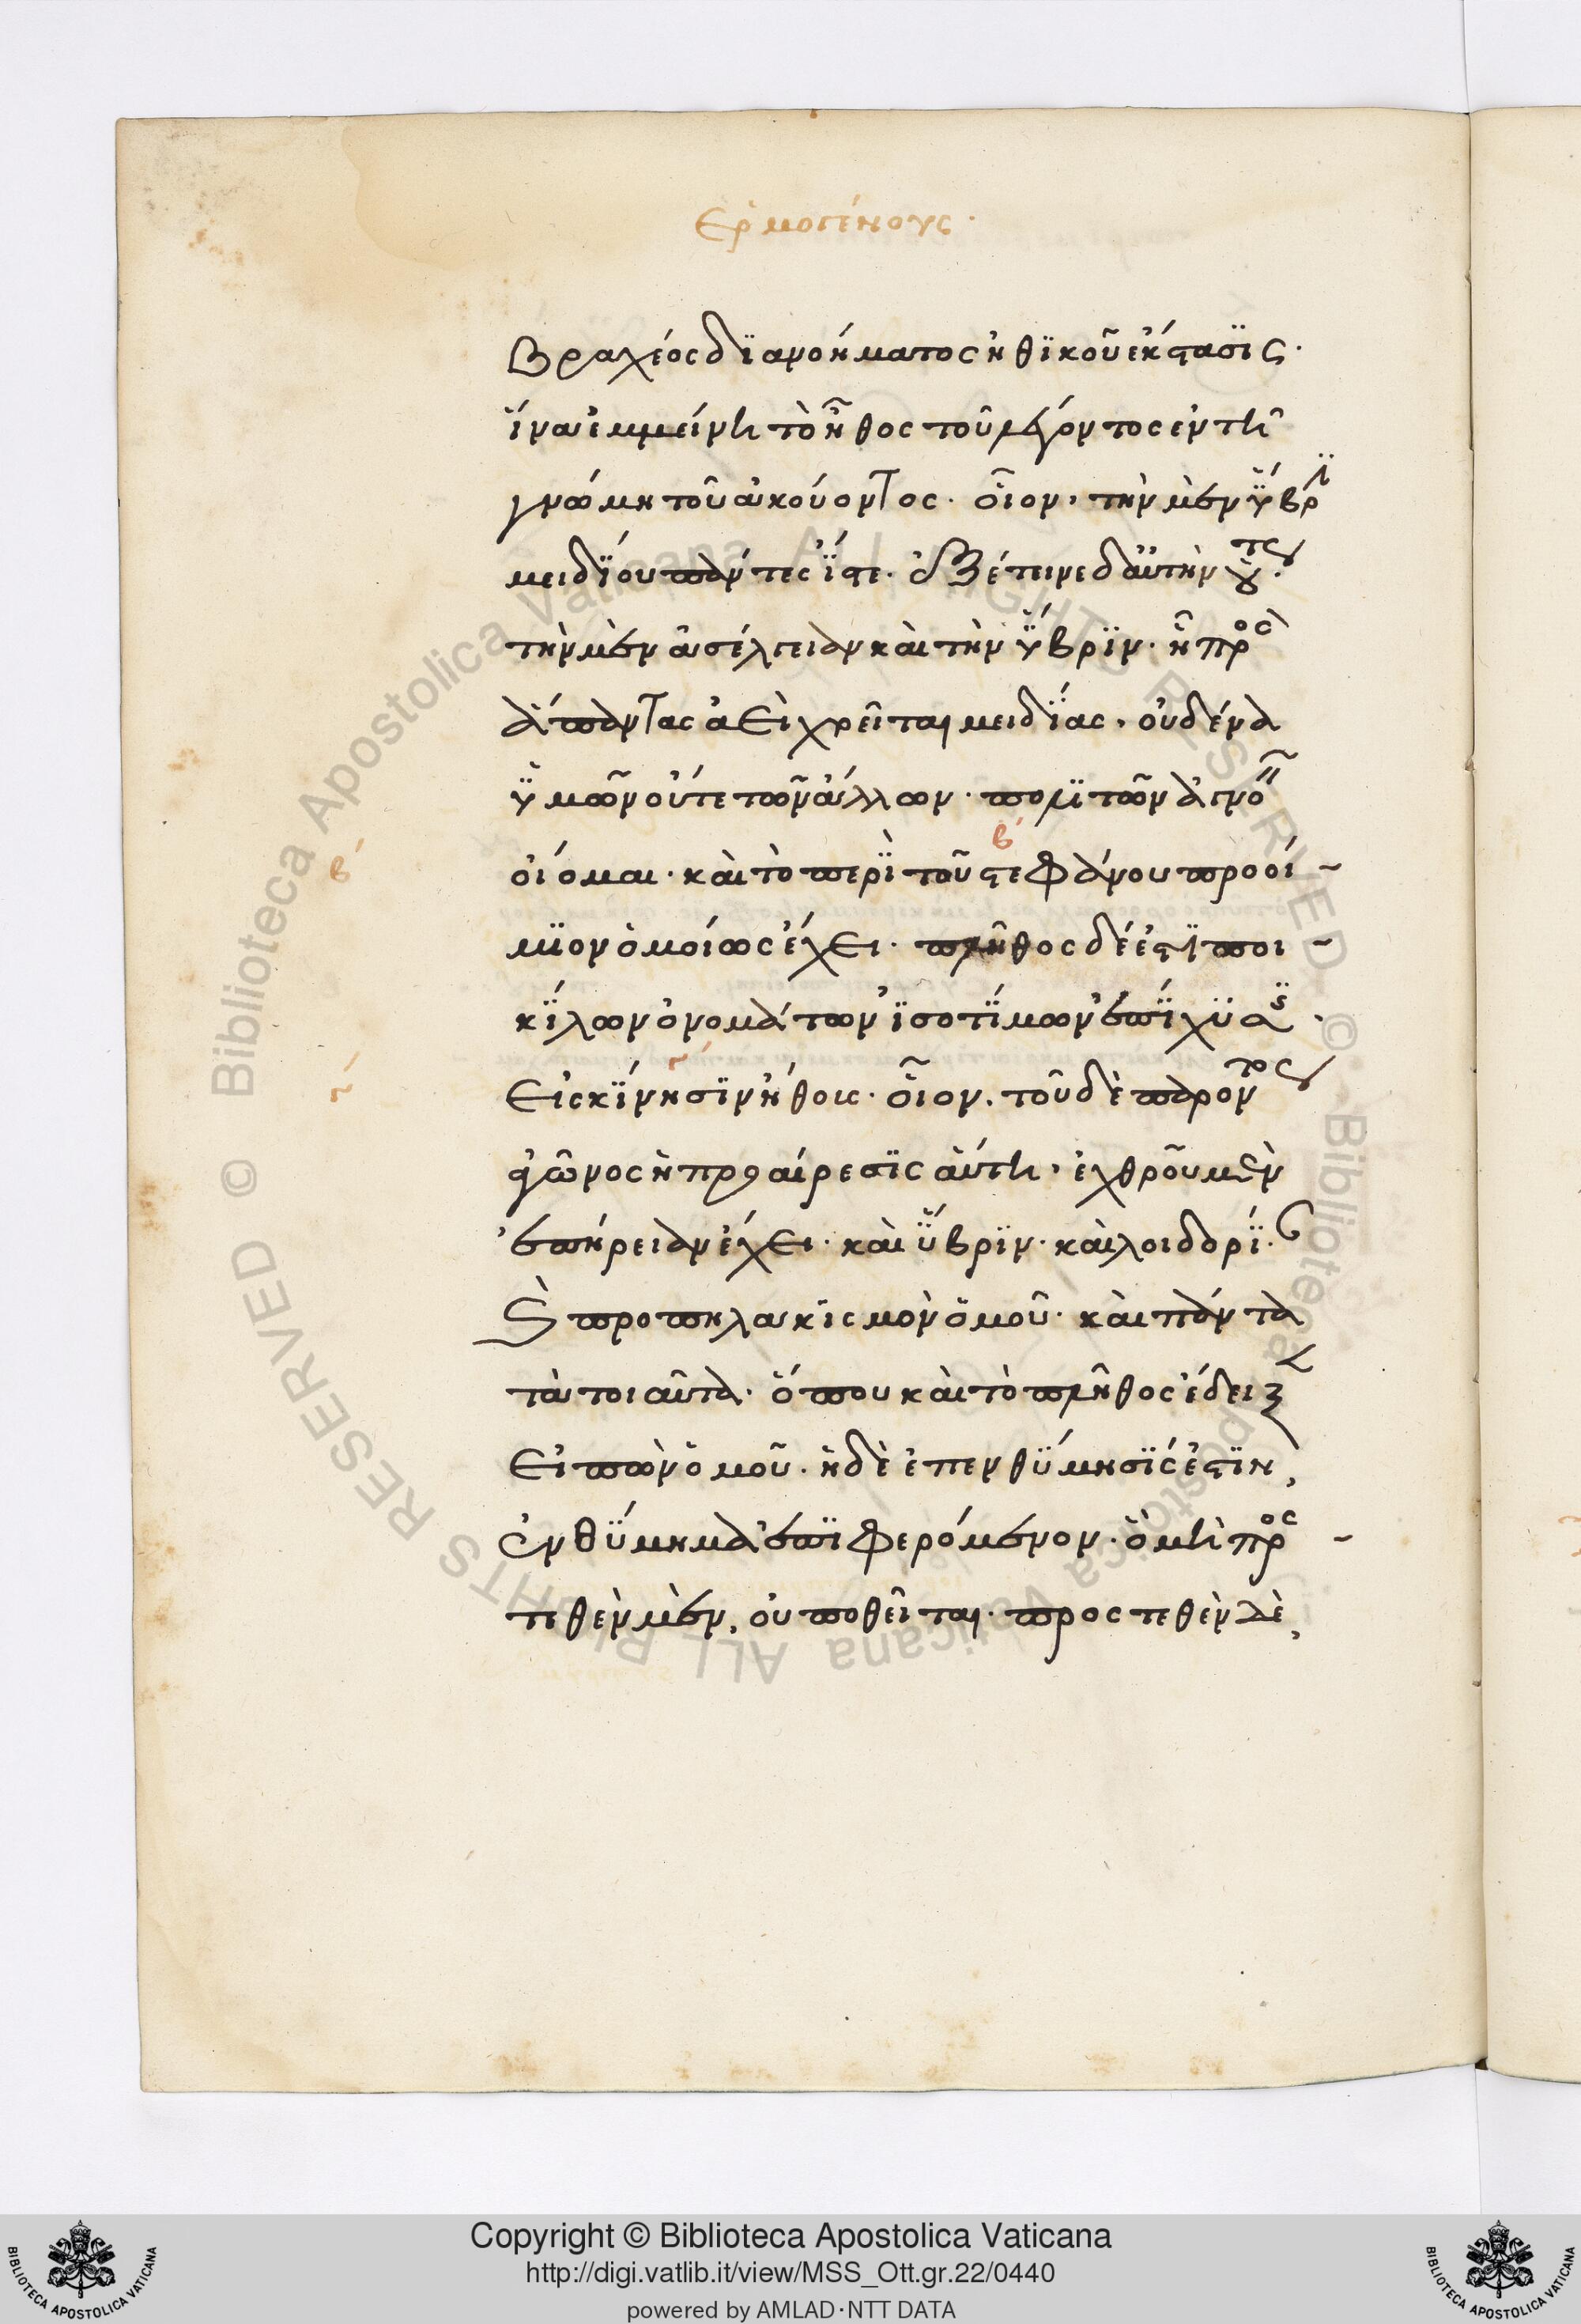 Ἑρμογένους.
βραχέος διανοήματος ἠθικοῦ ἔκστασις.
ἵνα ἐμμείνῃ τὸ ἦθος τοῦ λέγοντος ἐν τῇ
γνώμη τοῦ ἀκούοντος. οἷον, τὴν μὲν ὕβριν
μειδίου πάντες ἴστε. ἐξέτεινε δ αὐτὴν οὕτως.
τὴν μὲν ἀσέλγειαν καὶ τὴν ὕβριν. ἣ πρὸς
ἅπαντας ἀεὶ χρῆται μειδίας, οὐδένα
ὑμῶν οὔτε τῶν ἄλλων. πολιτῶν ἀγνοεῖν
οἴομαι. καὶ τὸ περὶ τοῦ στεφάνου προοί
μιον ὁμοίως ἔχει. πλῆθος δέ ἐστι ποι
κίλων ὀνομάτων ἰσοτίμων
εἰς κίνησιν ἤθους. οἷον. τοῦ δὲ παρόντος
ἀγῶνος ἡ προαίρεσις αὐτη, ἐχθροῦ μὲν
ἐπήρειαν ἔχει. καὶ ὕβριν. καὶ λοιδορίαν.
καὶ προπηλακισμὸν ὁμοῦ. καὶ πάντα
τὰ τοιαῦτα. ὅπου καὶ τὸ πλῆθος ἔδειξεν
εἰπὼν ὁμοῦ. ἡ δὲ ἐπενθύμησίς ἐστιν,
ἐνθύμημα ἐπιφερόμενον. ὃ μὴ προσ
τεθὲν μὲν, οὐ ποθεῖται. προστεθὲν δὲ,
β
β
γ
γ
Copyright © Biblioteca Apostolica Vaticana
http://digi.vatlib.it/view/MSS_Ott.gr.22/0440
powered by AMLAD·NTT DATA
BIBLIOTECA APOSTOLICA VATICANA
BIBLIOTECA APOSTOLICA VATICANA
© Biblioteca Apostolica Vaticana ALL RIGHTS RESERVED
© Biblioteca Apostolica Vaticana ALL RIGHTS RESERVED